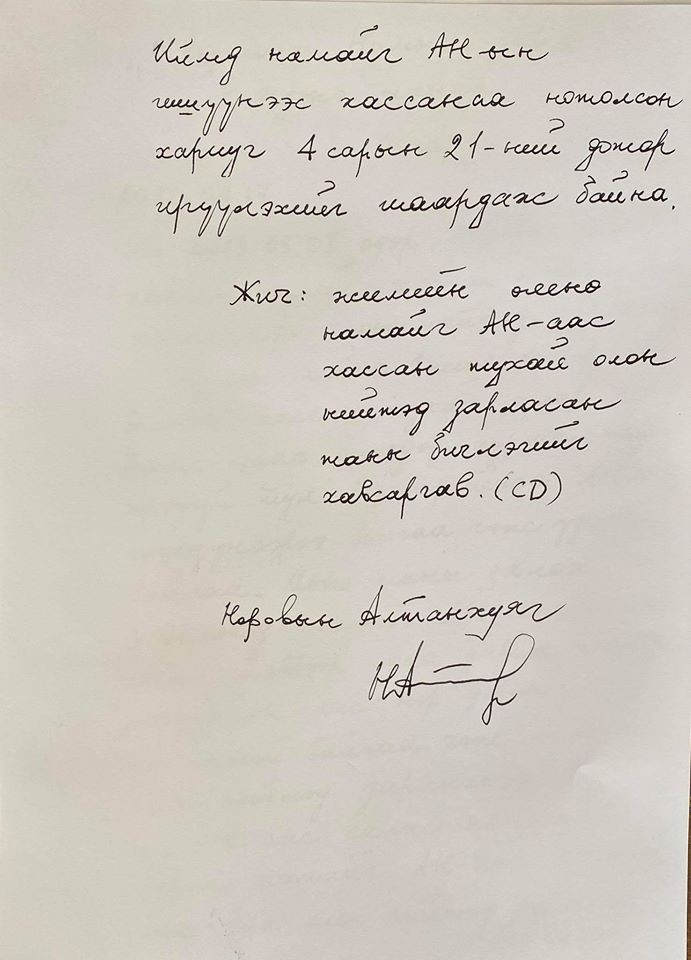 Иймд намайг АН-ын
гишүүнээс хассанаа нотолсон
хариуг 4 сарын 21-ний дотор
ирүүлэхийг шаардаж байна.
Жич: жилийн өмнө
намайг АН-аас
хассан тухай олон
нийтэд зарласан
таны бичлэгийг
хавсаргав. (CD)
Норовын Алтанхуяг
НА